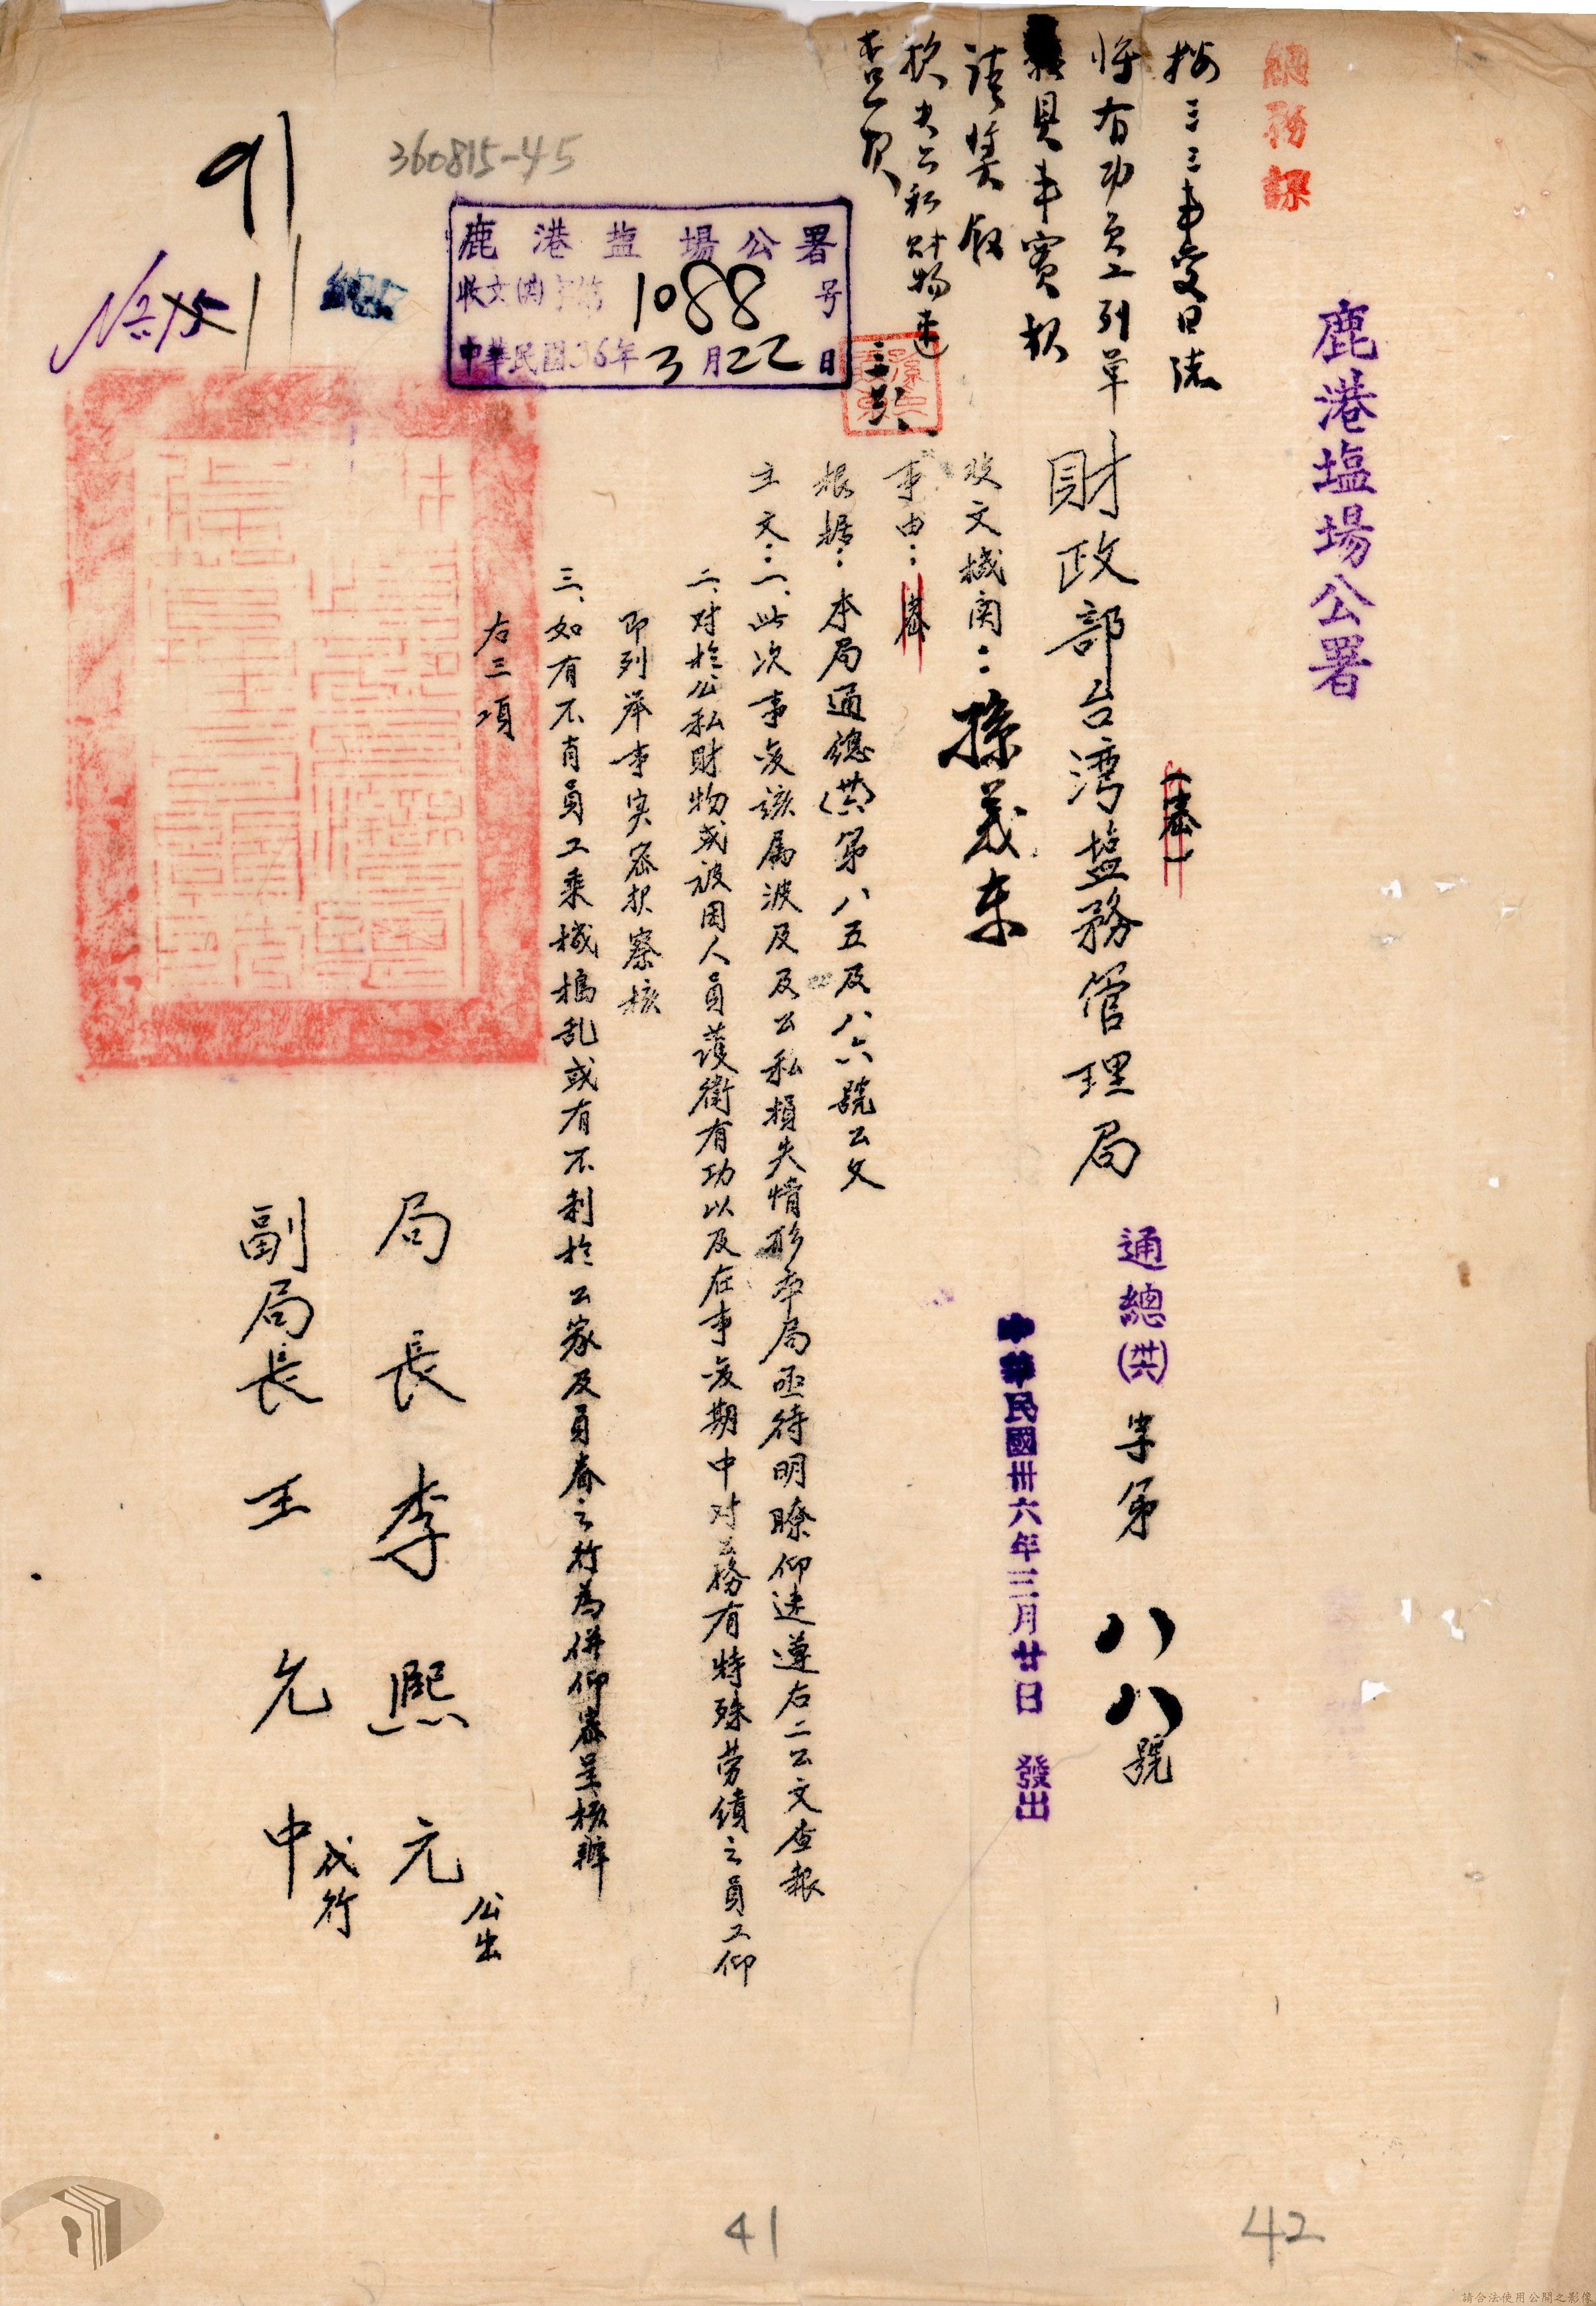 總務課
鹿港塩場公署
按三三事变日誌
將有功員工列單
具事實报
請獎敘
损失公私財物速
查报
三廿八
(巻)
財政部台湾塩務管理局
通總(卅六)字第八八號
中華民國卅六年三月廿日 發出
收文機関：孫義东
事由：巻
根据：本局通總(卅六)第八五及八六號公文
主文：一、此次事变該属波及及公私損失情形本局亟待明瞭仰速遵右二公文查報
二、对於公私財物或被困人員護衛有功以及在事变期中对公務有特殊劳績之員工仰
即列举事实密报察核
三、如有不肖員工乘機搗乱或有不利於公家及員眷之行為併仰密呈核辦
右三項
局長李熙元 公出
副局長王允中 代行
鹿港塩場公署
收文(卅六)字第1088号
中華民國36年3月22日
360815-45
41
42
請合法使用公開之影像